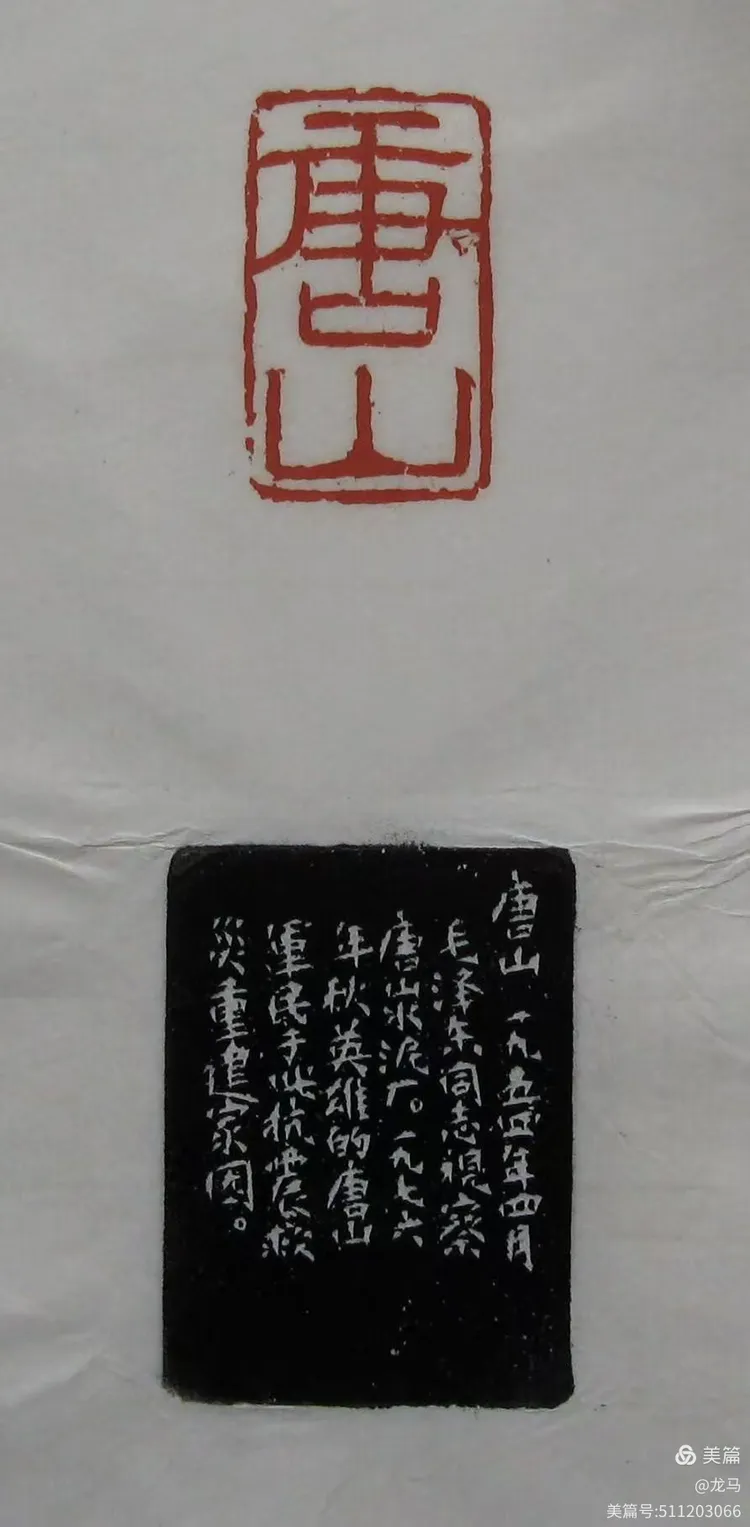 唐山
唐山 一九五四年四月
毛泽东同志視察
唐山水泥厂。一九七六
年秋英雄的唐山
軍民于此抗震救
災重建家园。
美篇
@龙马
美篇号:511203066